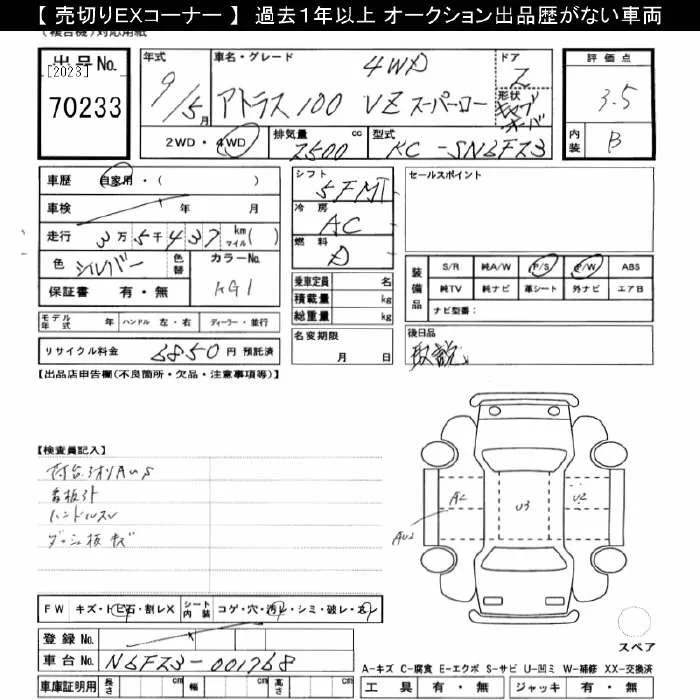 【 売切りEXコーナー 】 過去1年以上 オークション出品歴がない車両
(複合機)対応用紙
出品No.
[2023]
70233
年式
9/5月
車名・グレード
4WD
アトラス100 VZスーパーロー
ドア
2
形状
評価点
3.5
内装
B
2WD・4WD
排気量
2500 cc
型式
KC-SN6F23
車歴 自家用・( )
車検 年 月
走行 3万5千437 km マイル( )
色 シルバー 色替 カラーNo. KG1
保証書 有・無
シフト
5FMT
冷房
AC
燃料
D
乗車定員 名
積載量 kg
総重量 kg
名変期限
月 日
セールスポイント
装備品
S/R 純A/W P/S P/W ABS
純TV 純ナビ 革シート 外ナビ エアB
ナビ型番:
後日品
取説
モデル年式 年 ハンドル 左・右 ディーラー・並行
リサイクル料金 6850 円 預託済
【出品店申告欄(不良箇所・欠品・注意事項等)】
【検査員記入】
荷台
看板外
ハンドルスレ
ダッシュ板キズ
A2
AU2
U3
U2
FW キズ・トビ石・割レX シート内装 コゲ・穴・汚レ・シミ・破レ・スレ
登録No.
車台No. N6F23-001768
車庫証明用 長さ cm 幅 cm 高さ cm
スペア
A-キズ C-腐食 E-エクボ S-サビ U-凹ミ W-補修 XX-交換済
工具 有・無 ジャッキ 有・無